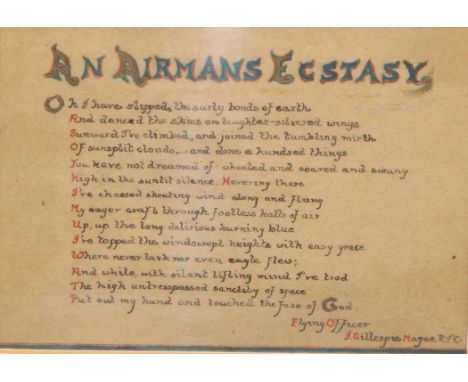 AN AIRMANS ECSTASY
Oh I have slipped the surly bonds of earth
And danced the skies on laughter-silvered wings
Sunward I've climbed, and joined the tumbling mirth
Of sunsplit clouds, and done a hundred things
You have not dreamed of wheeled and soared and swung
High in the sunlit silence. Hovering there
I've chased shouting wind along and flung
My eager craft through footless halls of air
Up, up the long delirious burning blue
I've topped the windswept heights with easy grace
Where never lark nor even eagle flew;
And while with silent lifting mind I've trod
The high untrespassed sanctity of space
Put out my hand and touched the face of God.
Flying Officer
J. Gillespie Magee R.F.C.